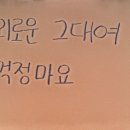 외로운 그대여
걱정마요